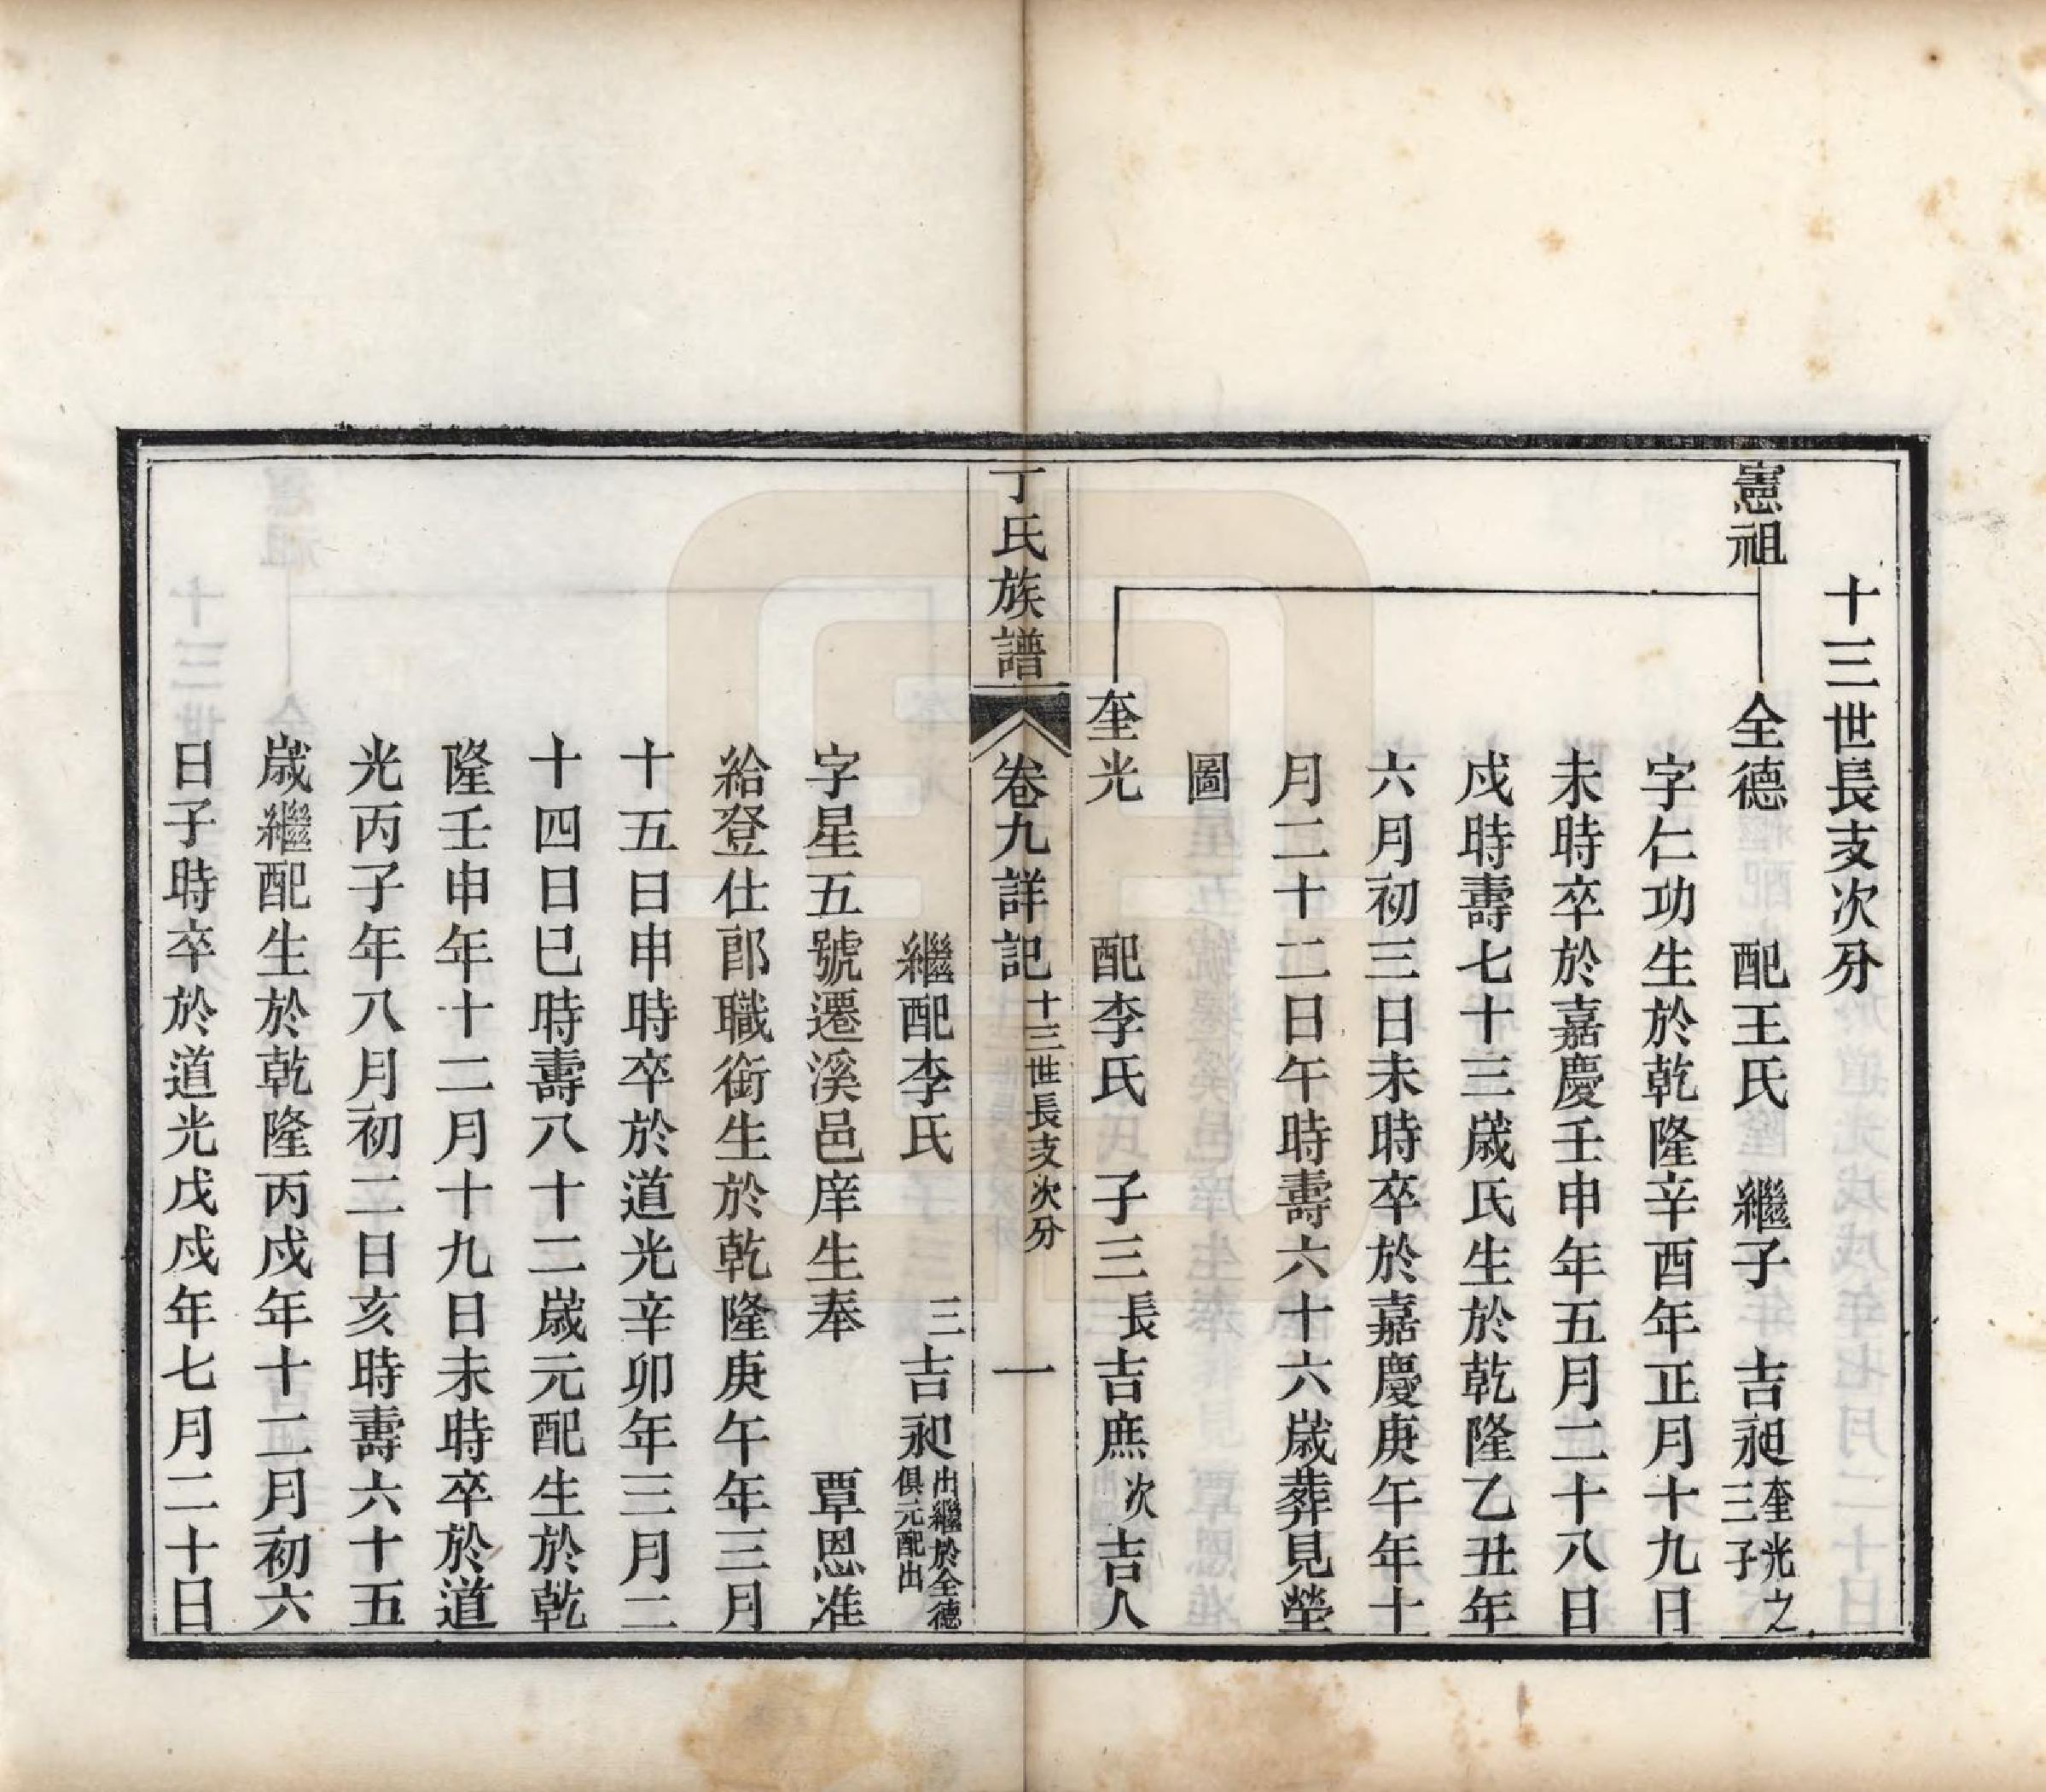 十三世長支次分
憲祖　全德　配王氏　繼子　吉昶 奎光之三子
字仁功生於乾隆辛酉年正月十九日
未時卒於嘉慶壬申年五月二十八日
戌時壽七十三歲氏生於乾隆乙丑年
六月初三日未時卒於嘉慶庚午年十
月二十二日午時壽六十六歲葬見塋
圖
奎光　配李氏　子三 長吉庶 次吉人
丁氏族譜　卷九詳記 十三世長支次分　一
繼配李氏　三吉昶 出繼於全德俱元配出
字星五號遷溪邑庠生奉　覃恩准
給登仕郎職銜生於乾隆庚午年三月
十五日申時卒於道光辛卯年三月二
十四日巳時壽八十二歲元配生於乾
隆壬申年十二月十九日未時卒於道
光丙子年八月初二日亥時壽六十五
歲繼配生於乾隆丙戌年十二月初六
日子時卒於道光戊戌年七月二十日